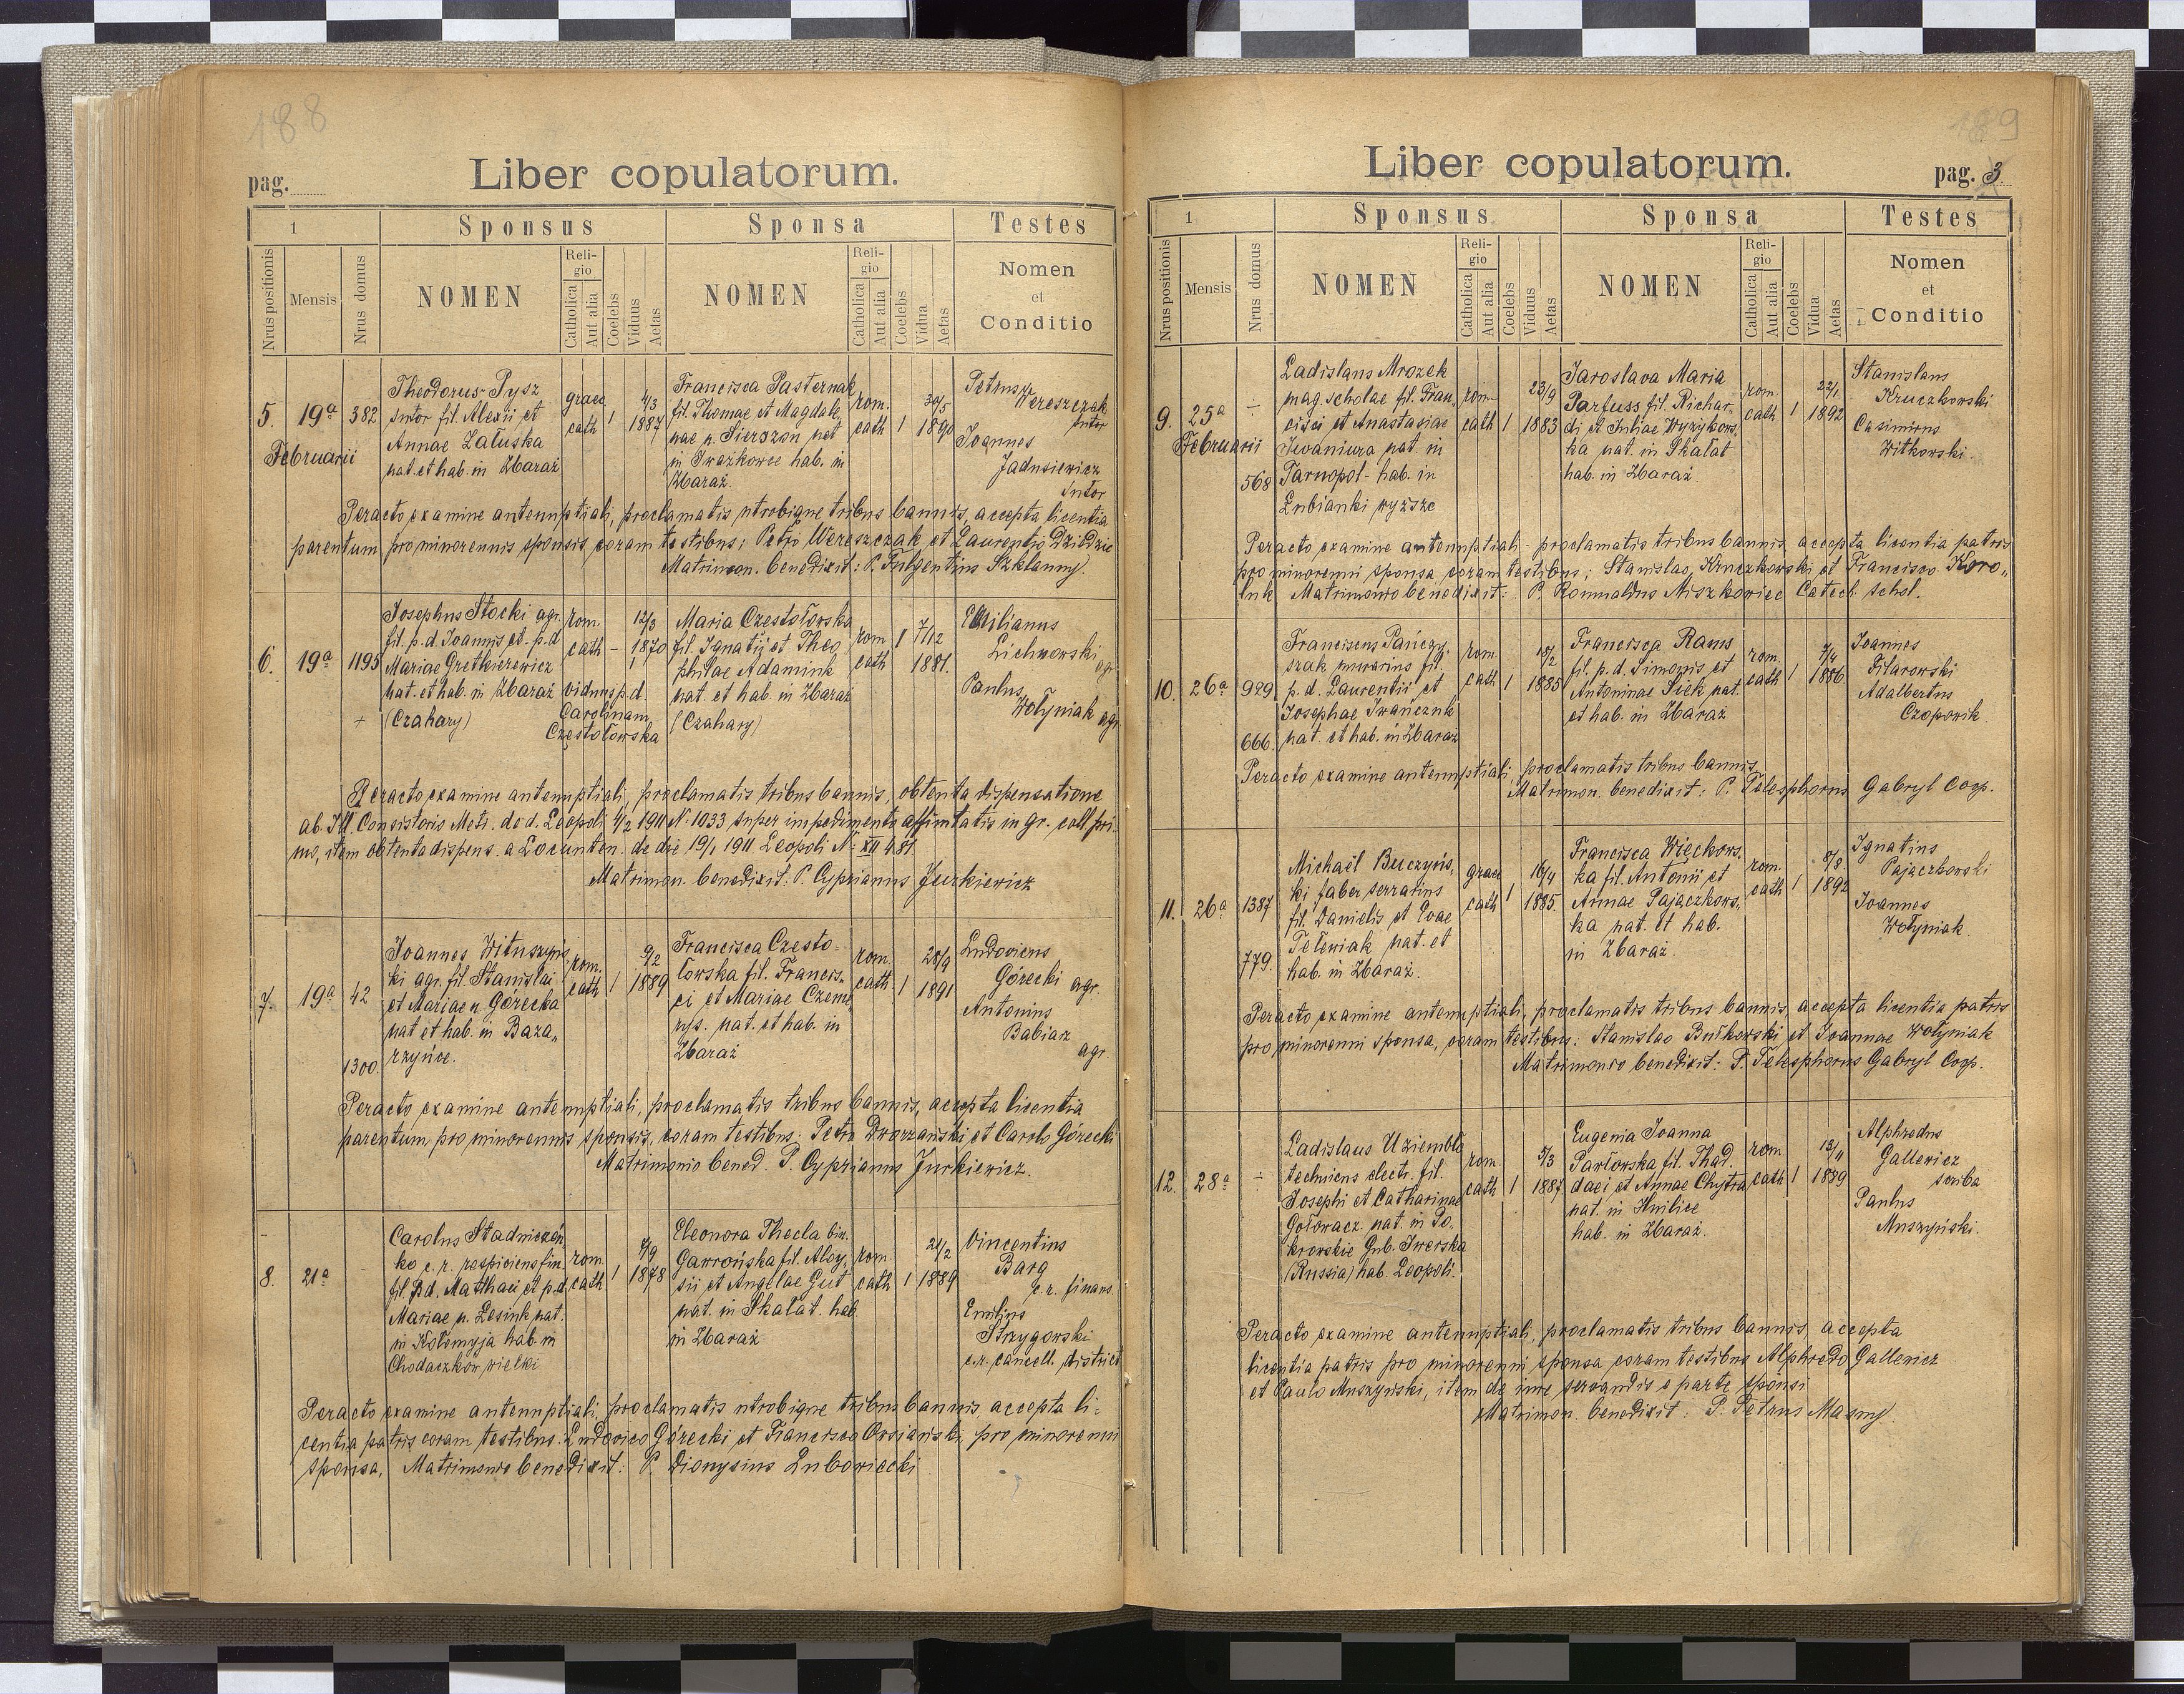 188
Liber copulatorum.
pag.
1
Sponsus
Sponsa
Testes
Nrus positionis
Mensis
Nrus domus
NOMEN
Religio
Catholica
Aut alia
Coelebs
Viduus
Aetas
NOMEN
Religio
Catholica
Aut alia
Coelebs
Vidua
Aetas
Nomen
et
Conditio
5. 19a Februarii 382
Theodorus Pysz
sutor fil. Alexii et
Annae Załuska
nat. et hab. in Zbaraż
graec
cath 1 4/3 1887
Francisca Pasternak
fil. Thomae et Magdale
nae n. Sierszon nat
in Iwaszkowce hab. in
Zbaraż
rom.
cath 1 30/5 1890
Petrus
Wereszczak
sutor
Joannes
Jadusiewicz
sutor
Peracto examine antenuptiali, proclamatis utrobique tribus bannis, accepta licentia
parentum pro minorennis sponsis, coram testibus: Petro Wereszczak et Laurentio Dzidzic
Matrimon. benedixit: P. Fulgentius Szklanny.
6. 19a 1195
Josephus Stocki agr.
fil. p.d. Joannis et. p.d
Mariae Gretkierewicz
nat. et hab. in Zbaraż
+ (Czahary)
rom.
cath – 12/3 1870
1
viduus p.d.
Carolinam
Częstołowska
Maria Czestołowska
fil. Ignatii et Theo
philae Adamiuk
nat. et hab. in Zbaraż
(Czahary)
rom
cath 1 7/12 1881.
Emilianus
Lichnowski
agr.
Paulus
Wołyniak agr.
Peracto examine antenuptiali, proclamatis tribus bannis, obtenta dispensatione
ab. Ill. Consistorio Metr. de d. Leopoli 4/2 1911 N: 1033 super impedimento affinitatis in gr. coll pri-
mo, item obtenta dispens. a Locumten. de die 19/1 1911 Leopoli N: XII 481
Matrimon. benedixit: P. Cyprianus Jurkiewicz
7. 19a 42
1300.
Joannes Wituszyńs
ki agr. fil. Stanislai
et Mariae n. Górecka
nat et hab. in Baza„
rzyńce.
rom.
cath 1 9/2 1889
Francisca Czesto-
łowska fil. Francis„
ci et Mariae Czeme
rys. nat. et hab. in
Zbaraż
rom
cath. 1 28/9 1891
Ludovicus
Górecki agr.
Antonius
Babiaz
agr.
Peracto examine antenuptiali, proclamatis tribus bannis, accepta licentia
parentum pro minorennis sponsis, coram testibus: Petro Dworzański et Carolo Górecki
Matrimonio bened. P. Cyprianus Jurkiewicz.
8. 21a
Carolus Stadniczeń
ko c.r. respiciens fin.
fil. p.d. Matthaei et p.d.
Mariae n. Lesiuk nat.
in Kołomyja hab. in
Chodaczków wielki
rom.
cath 1 1878
Eleonora Thecla bin.
Gawrońska fil. Aloy„
sii et Angelae Gut
nat. in Skałat. hab.
in Zbaraż
rom.
cath 1 24/2 1889
Vincentius
Barg
c.r. finans.
Emilius
Strzygowski
c.r. cancell. district
Peracto examine antenuptiali, proclamatis utrobique tribus bannis, accepta li-
centia patris coram testibus: Ludovico Górecki et Francisco Orsiański pro minorenni
sponsa, Matrimonio benedixit: P. Dionysius Lubowiecki
189
Liber copulatorum.
pag. 3
1
Sponsus
Sponsa
Testes
Nrus positionis
Mensis
Nrus domus
NOMEN
Religio
Catholica
Aut alia
Coelebs
Viduus
Aetas
NOMEN
Religio
Catholica
Aut alia
Coelebs
Vidua
Aetas
Nomen
et
Conditio
9. 25a Februarii ÷
568
Ladislaus Mrozek
mag. scholae fil. Fran„
cisci et Anastasiae
Iwaniura nat. in
Tarnopol - hab. in
Łubianki wyższe
rom.
cath 1 23/9 1883
Jaroslava Maria
Parfuss fil. Richar„
di et Juliae Wyżykows
ka nat. in Skałat
hab. in Zbaraż
rom.
cath 1 22/1 1892
Stanislaus
Kruczkowski
Casimirus
Witkowski.
Peracto examine antenuptiali - proclamatis tribus bannis, accepta licentia patris
pro minorenni sponsa, coram testibus; Stanislao Kruczkowski et Francisco Koro„
luk Matrimonio benedixit: P. Romualdus Niszkowicz Catech. schol.
10. 26a 929
666.
Franciscus Pańczy„
szak murarius fil.
p.d. Laurentii et
Josephae Iwańczuk
nat. et hab. in Zbaraż
rom.
cath 1 18/2 1885
Francisca Raus
fil. p.d. Simonis et
Antoninae Siek nat.
et hab. in Zbaraż
rom.
cath 1 7/4 1886
Joannes
Filarowski
Adalbertus
Czopowik.
Peracto examine antenuptiali, proclamatis tribus bannis
Matrimon. benedixit: P. Telesphorus Gabryl Coop.
11. 26a 1387
779.
Michaël Buczyńs„
ki faber serrarius
fil. Danielis et Evae
Telewiak nat. et
hab. in Zbaraż.
graec
cath 1 16/4 1885.
Francisca Więckows„
ka fil. Antonii et
Annae Pajączkows„
ka nat. et hab.
in Zbaraż
rom.
cath 1 8/8 1892
Ignatius
Pajączkowski
Joannes
Wołyniak.
Peracto examine antenuptiali, proclamatis tribus bannis, accepta licentia patris
pro minorenni sponsa, coram testibus: Stanislao Bułkowski et Joannae Wołyniak
Matrimonio benedixit: P. Telesphorus Gabryl Coop.
12. 28a ÷
Ladislaus Uziembło
technicus electr. fil.
Josephi et Catharinae
Gołowacz. nat. in Po„
krowskie Gub. Twerska
(Russia) hab. Leopoli.
rom.
cath 1 3/3 1887.
Eugenia Joanna
Pawłowska fil. Thad.
daei et Annae Chytra
nat. in Hnilice
hab. in Zbaraż.
rom
cath 1 13/11 1889
Alphredus
Gallewicz
scriba
Paulus
Muszyński.
Peracto examine antenuptiali, proclamatis tribus bannis, accepta
licentia patris pro minorenni sponsa coram testibus Alphredo Gallewicz
et Paulo Muszyński, item de iure servandis e parte sponsi
Matrimon. benedixit: P. Petrus Masny.